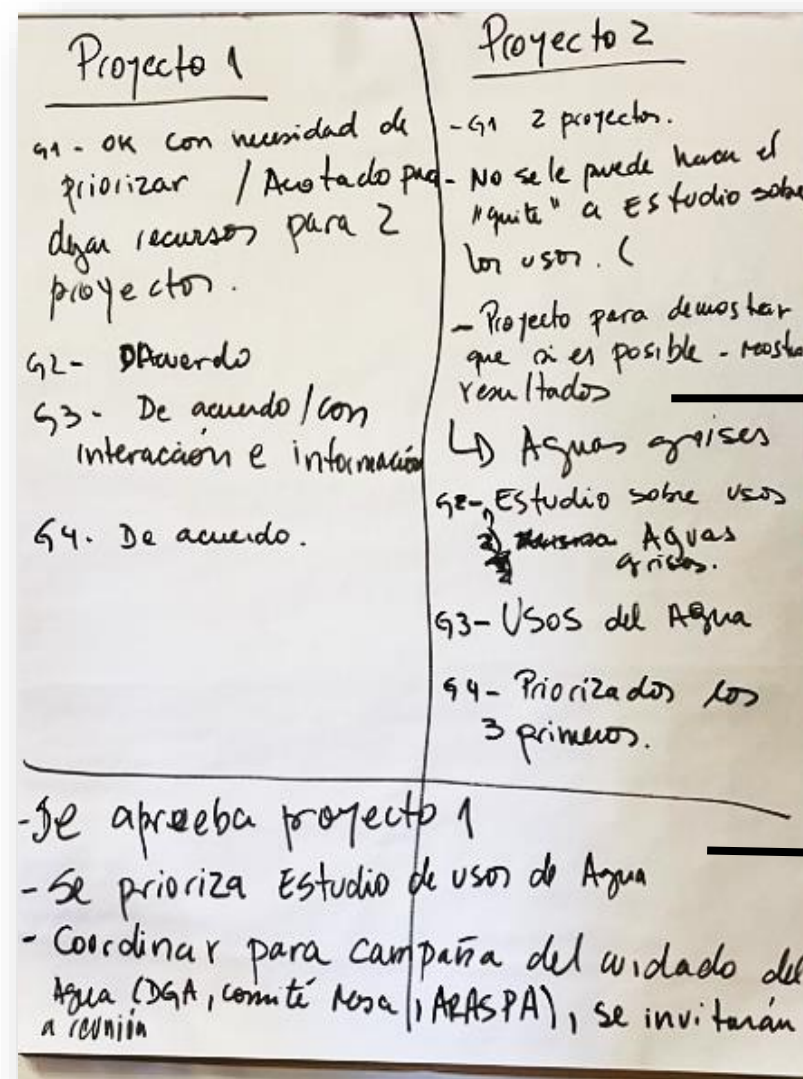 Proyecto 1
G1 - OK con necesidad de
priorizar / Acotado para
dejar recursos para 2
proyectos.
G2- DAcuerdo
G3- De acuerdo / con
interacción e información
G4. De acuerdo.
Proyecto 2
- G1 2 proyectos.
- No se le puede hacer el
"quite" a Estudio sobre
los usos. (
- Proyecto para demostrar
que si es posible - mostra
resultados
↳ Aguas grises
G2- Estudio sobre usos
2) Aguas
grises.
G3- Usos del Agua
G4- Priorizados los
3 primeros.
- Se aprueba proyecto 1
- Se prioriza Estudio de usos de Agua
- Coordinar para campaña del cuidado del
Agua (DGA, comité Mesa, ARASPA), se invitarán
a reunión